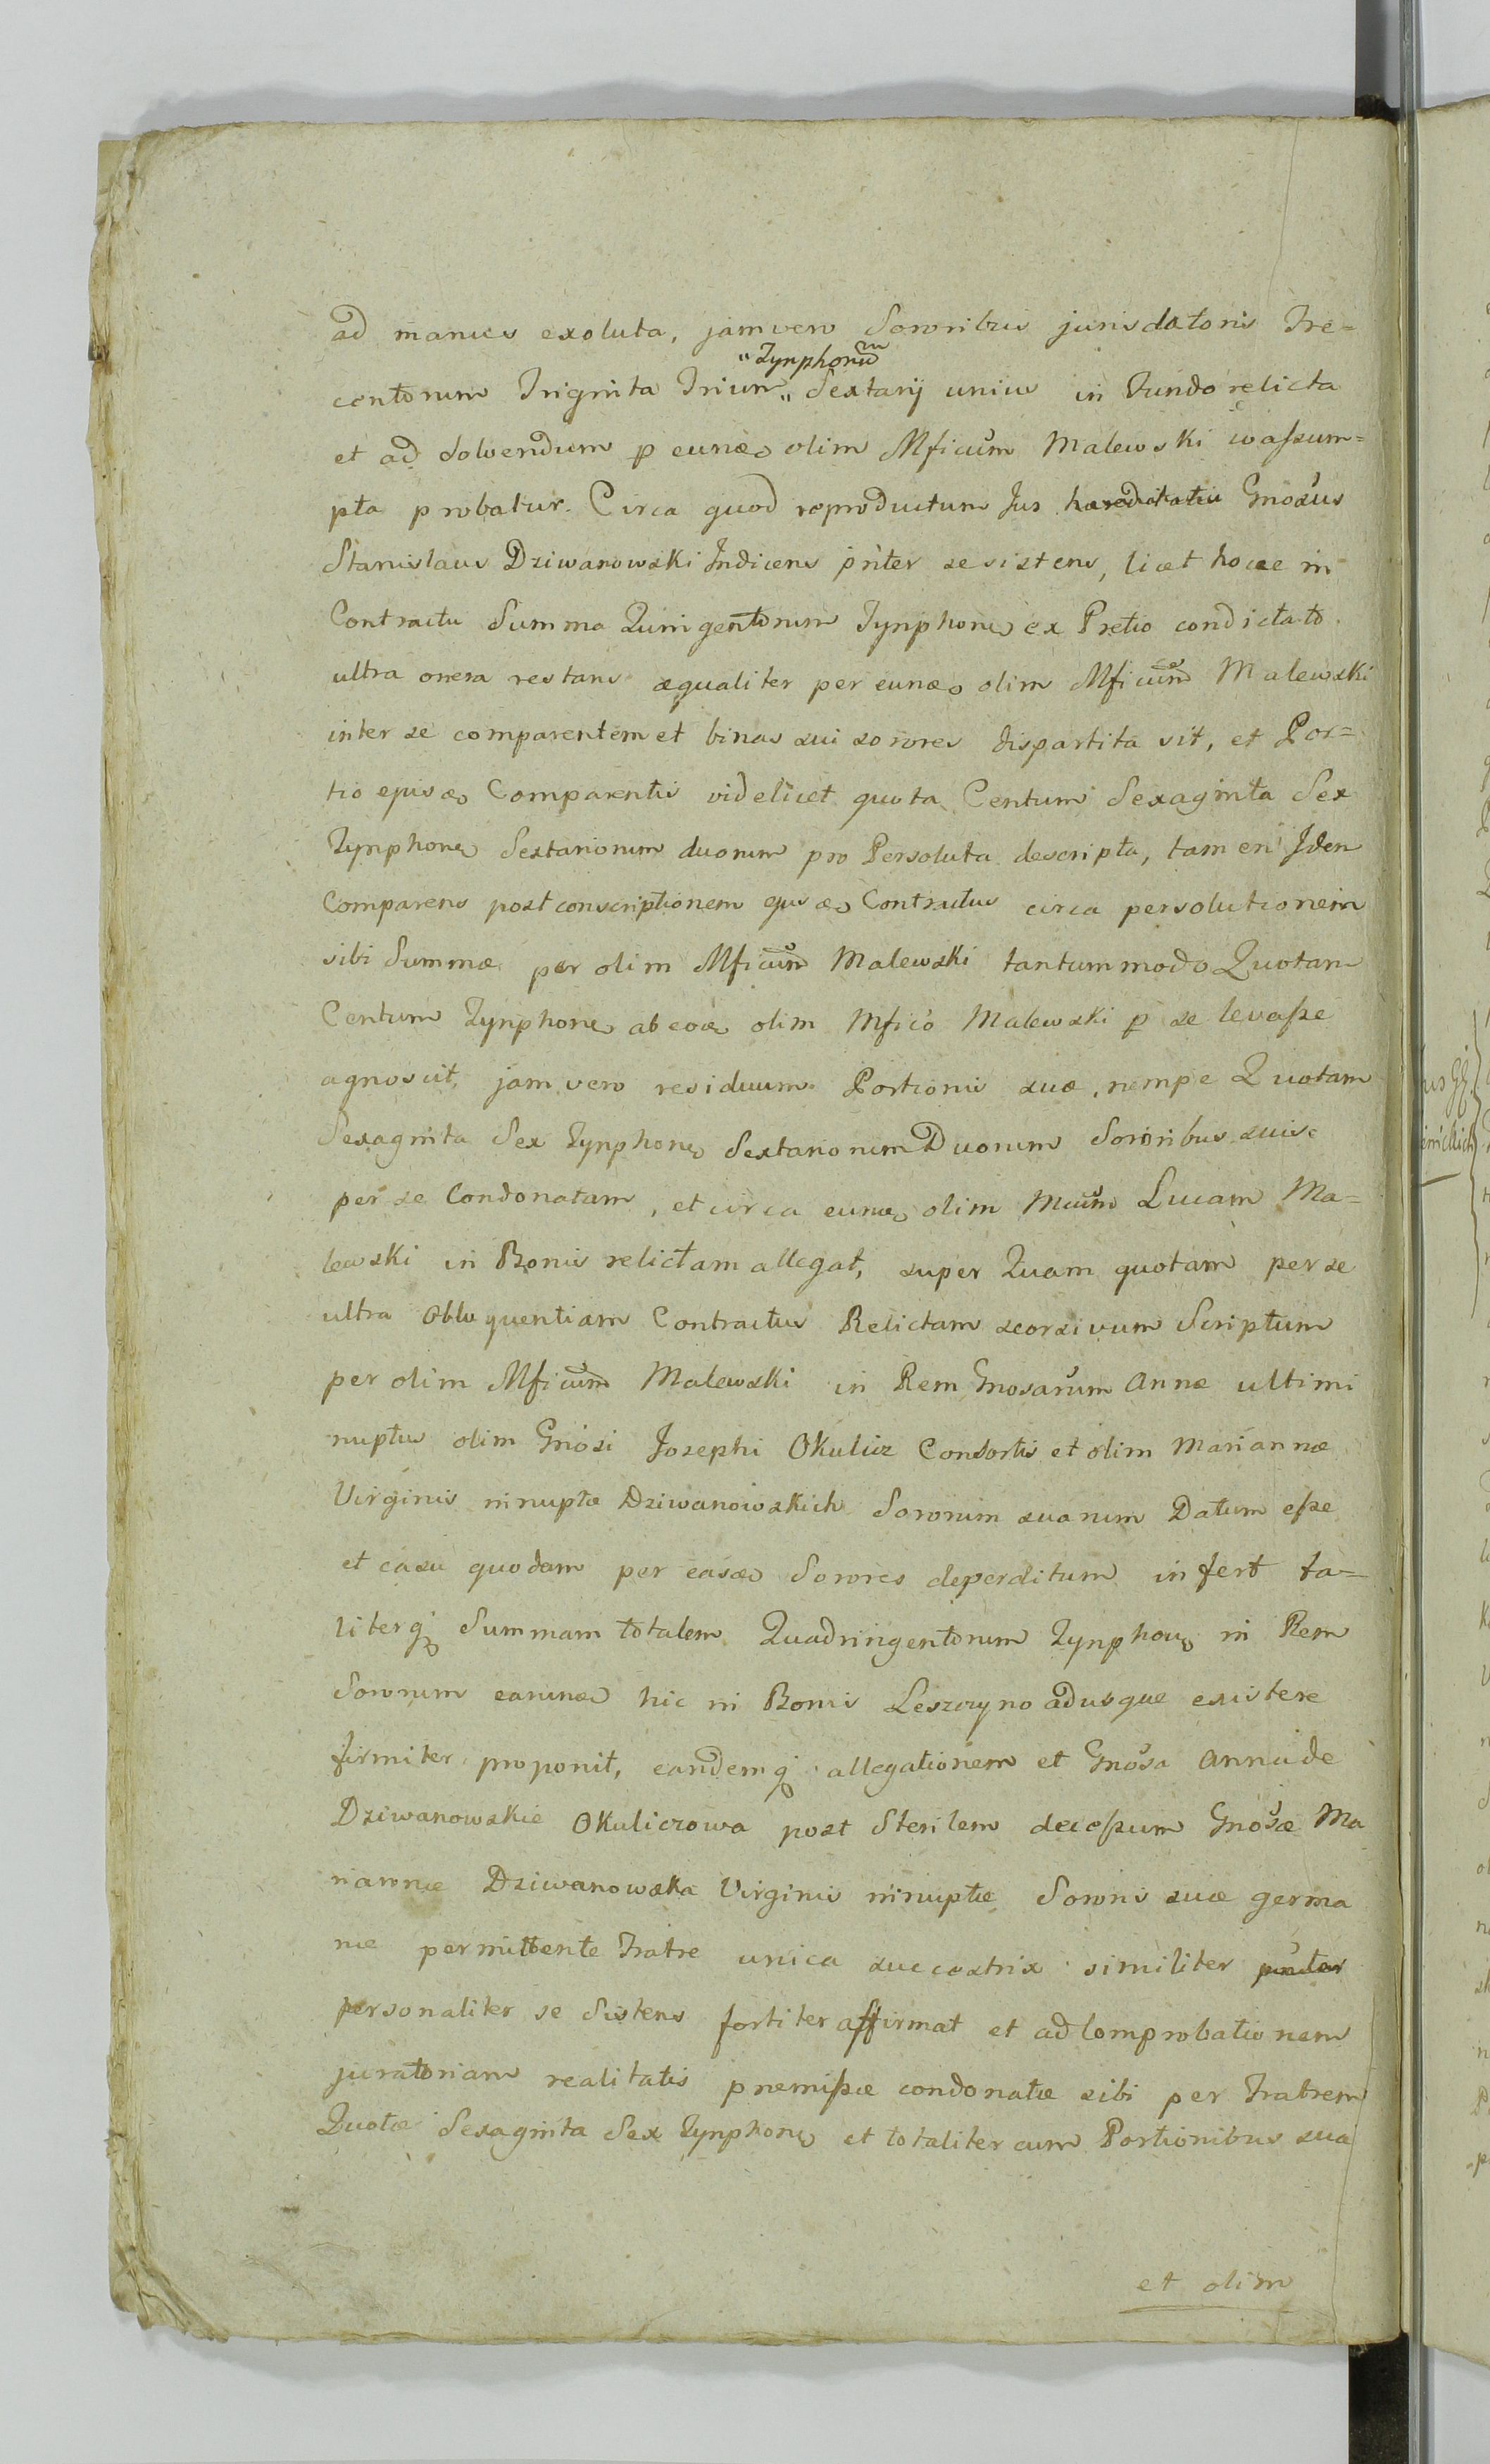 ad manus exoluta, jam vero Sororibus jurisdatoris Tre=
"Tynphorum
centorum Triginta Trium „ Sextarij unius in Fundo relicta
et ad Solvendum p eunde olim Mficum Malewski
pta probatur. Circa quod reproductum Jus haereditatis Gnosus
Stanislaus Dziwanowski Indicens pnter se sistens, licet hocce in
Contractu Summa Quingentorum Tynphone ex Pretio condictato
ultra onera restans aequaliter per eunde olim Mficum Malewski
inter se comparentem et binas sui sorores dispartita sit, et Por=
tio ejusde Comparentis videlicet quota Centum Sexaginta Sex
Tynphone Sextariorum duorum pro Persoluta descripta, tamen Idem
Comparens post conscriptionem ejusde Contractus circa persolutionem
sibi Summae per olim Mficum Malewski tantummodo Quotam
Centum Tynphone ab eode olim Mfico Malewski p se levasse
agnoscit, jam vero residuum Portionis suae, nempe Quotam
Sexaginta Sex Tynphone Sextariorum Duorum Sororibus suis
per se Condonatam, et circa eunde olim Mcum Lucam Ma=
lewski in Bonis relictam allegat, super Quam quotam per se
ultra Obloquentiam Contractus Relictam seorsivum Scriptum
per olim Mficum Malewski in Rem Gnosarum Annae ultimi
nuptus olim Gnosi Josephi Okulicz Consortis et olim Mariannae
Virginis innuptae Dziwanowskich Sororum suarum Datum esse
et casu quodam per easde Sorores deperditum infert ta=
literq Summam totalem Quadringentorum Tynphone in Rem
Sororum earunde hic in Bonis Leszczyno adusque existere
firmiter proponit, eandemq allegationem et Gnosa Anna de
Dziwanowskie Okuliczowa post Sterilem decessum Gnosae Ma
riannae Dziwanowska Virginis innuptae Sororis suae germa
nae permittente Fratre unica succestrix similiter pnter
personaliter se Sistens fortiter affirmat et ad Comprobationem
juratoriam realitatis praemissae condonatae sibi per Fratrem
Quotae Sexaginta Sex Tynphone et totaliter cum Portionibus sua
et olim